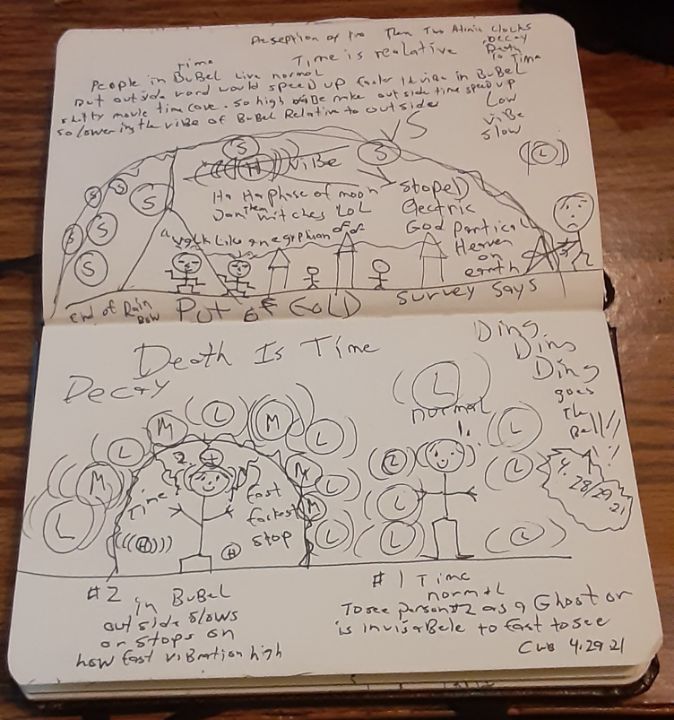 Time is realative
Decay
Death
is Time
Time
People in BuBel Live normal
But outside world would speed up
in BuBel
movie time
so high
make outside time speed up
so lowering the vibe of BuBel Relative to outside
Low
vibe
slow
(L)
S
S
H
vibe
S
S
S
S
S
S
S
S
Ha Ha phase of moon
witches LOL
Stope
Electric
God Partical
Heaven
on
earth
walk Like an egyption
End of Rain
Bow
Put of Gold
Survey Says
Death Is Time
Decay
Ding
Ding
Ding
goes
The
Bell!!
L
normal
1.
L
M
L
M
L
M
L
L
L
M
L
L
L
L
L
2.
+
Time
fast
fastest
stop
(((H)))
H
4.
28/29
.21
#2
in BuBel
outside slows
or stops on
how fast vibration high
#1 Time
normal
To see person #2 as a Ghost or
is invisaBele to fast to see
4.29.21